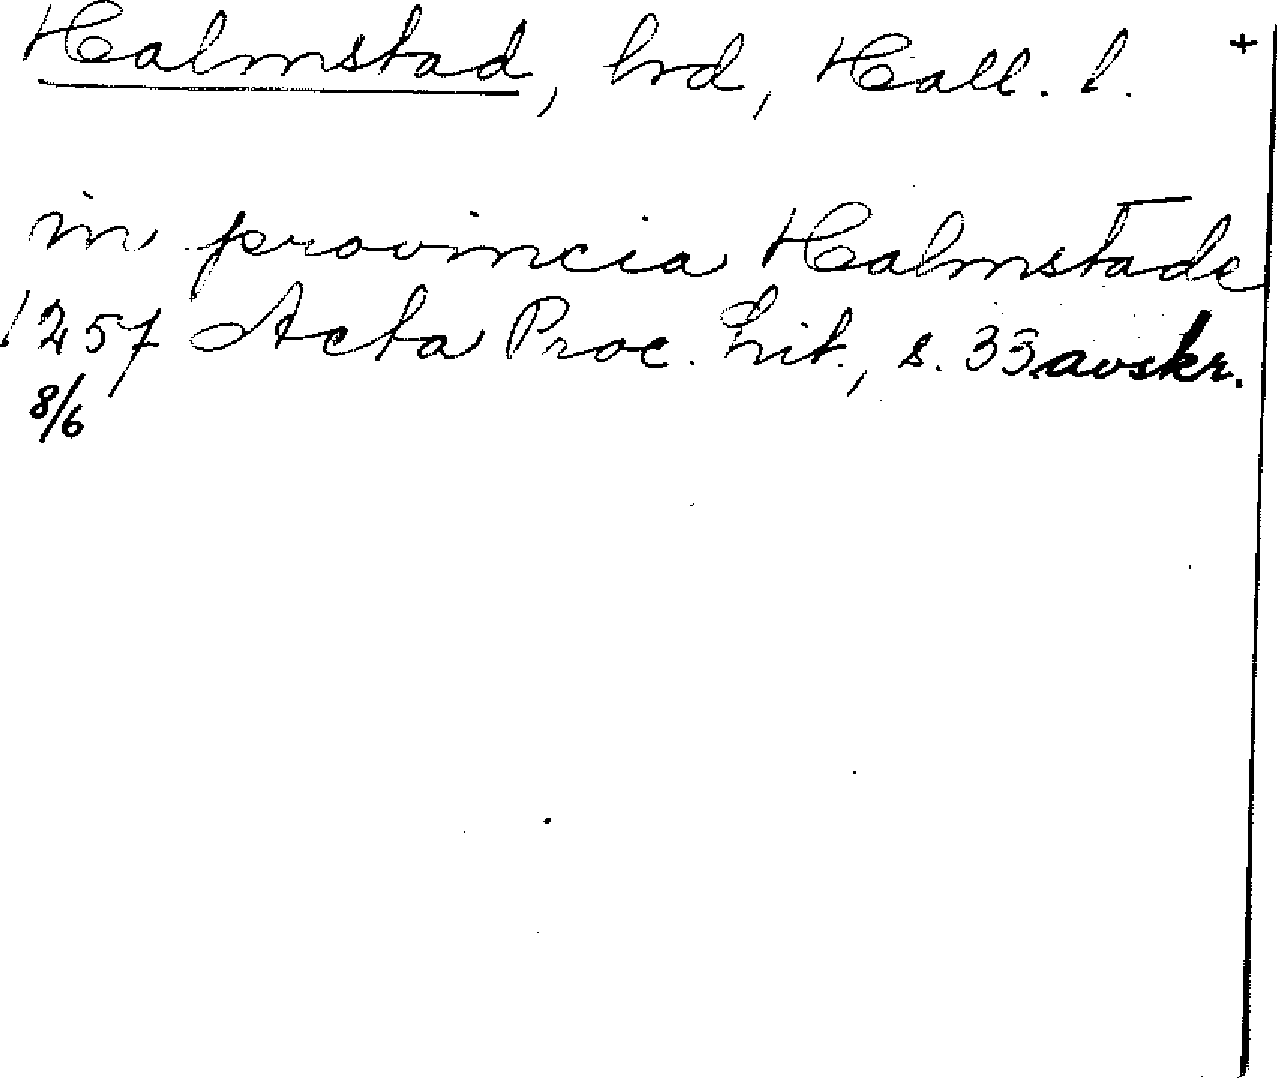 Halmstad, hrd, Hall. l. +
in provincia Halmstade
1257 Acta Proc. Lit., s. 33 avskr.
8/6